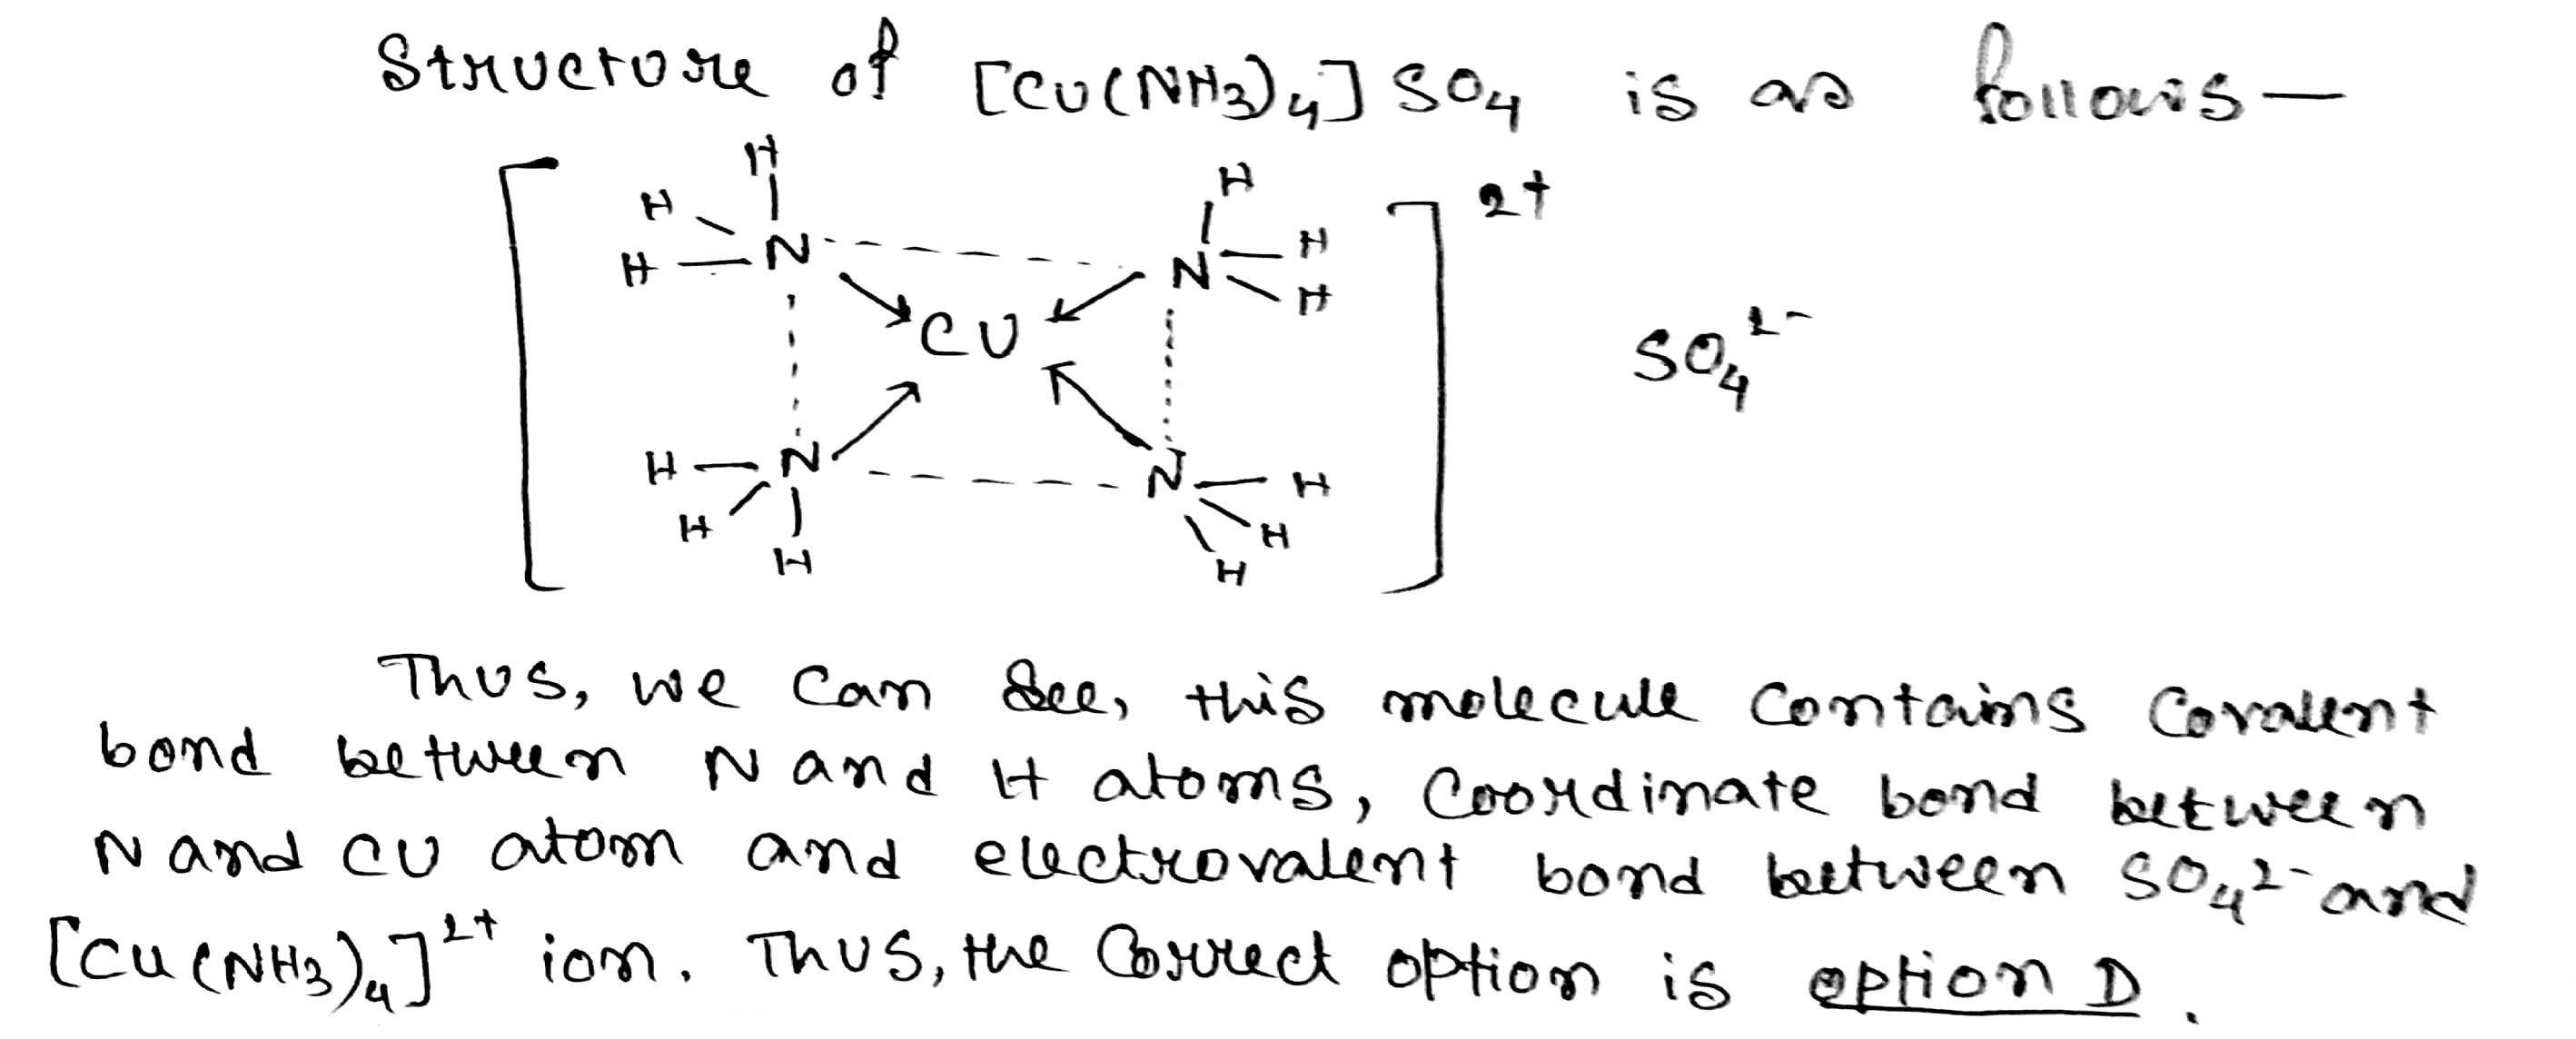 Structure of [Cu(NH3)4] SO4 is as follows—
H H
H 2+
H N N H
H H
CU
SO4 2-
H N N H
H H
H H
Thus, we can see, this molecule contains covalent
bond between N and H atoms, Coordinate bond between
N and CU atom and electrovalent bond between SO4 2- and
[Cu(NH3)4]2+ ion. Thus, the Correct option is option D.